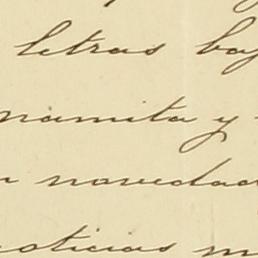 letras baj
namita y
n novedad
noticias m